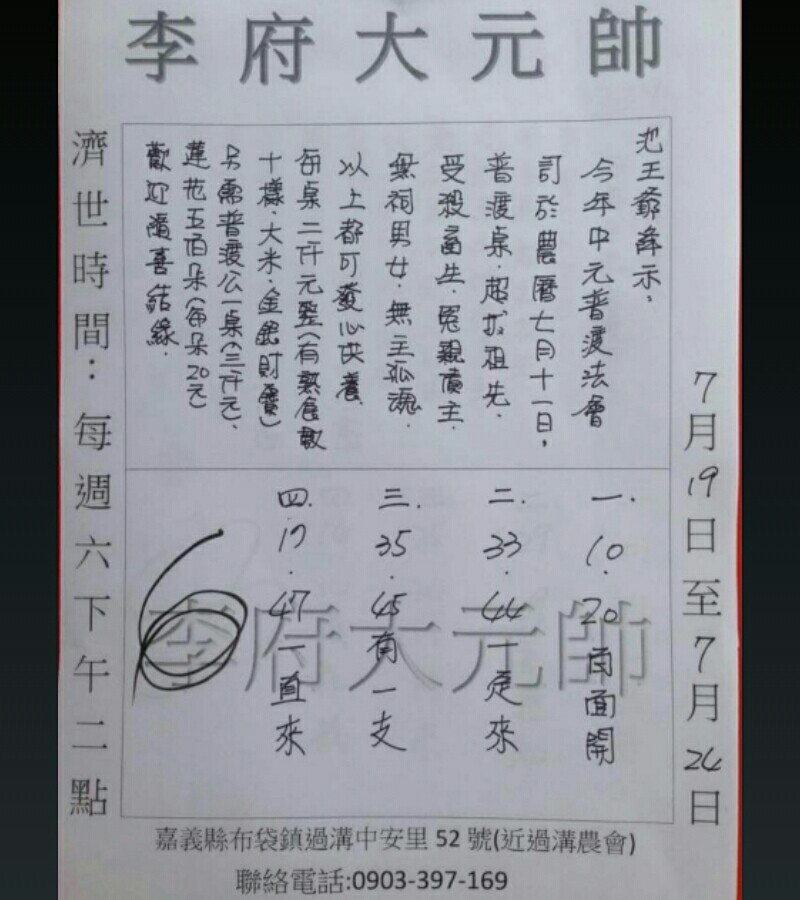 李府大元帥
7月19日至7月24日
池王爺降示,
今年中元普渡法會
訂於農曆七月十一日,
普渡桌.超拔祖先.
受殺畜生.冤親債主.
無祠男女.無主孤魂.
以上都可發心供養.
每桌二仟元整(有熟食數
十樣.大米.金銀財寶)
另需普渡公一桌(三仟元).
蓮花五佰朵(每朵20元)
歡迎隨喜結緣.
一.10.20兩面開
二.33.44一定來
三.35.45有一支
四.17.47一直來
李府大元帥
濟世時間：每週六下午二點
嘉義縣布袋鎮過溝中安里 52 號(近過溝農會)
聯絡電話:0903-397-169